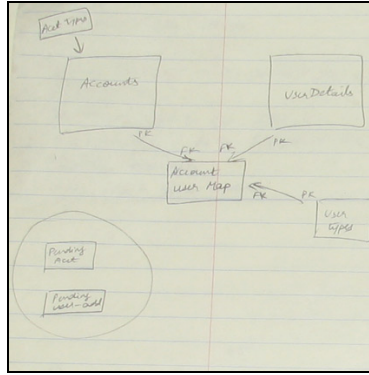 Acct Types
Accounts
User Details
PK
FK
FK
PK
Account
User Map
FK
PK
User
Types
Pending
Acct
Pending
user-add